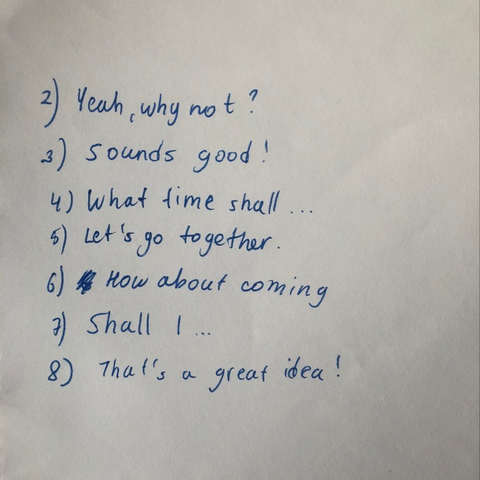 2) Yeah, why not?
3) Sounds good!
4) What time shall...
5) Let's go together.
6) How about coming
7) Shall I...
8) That's a great idea!